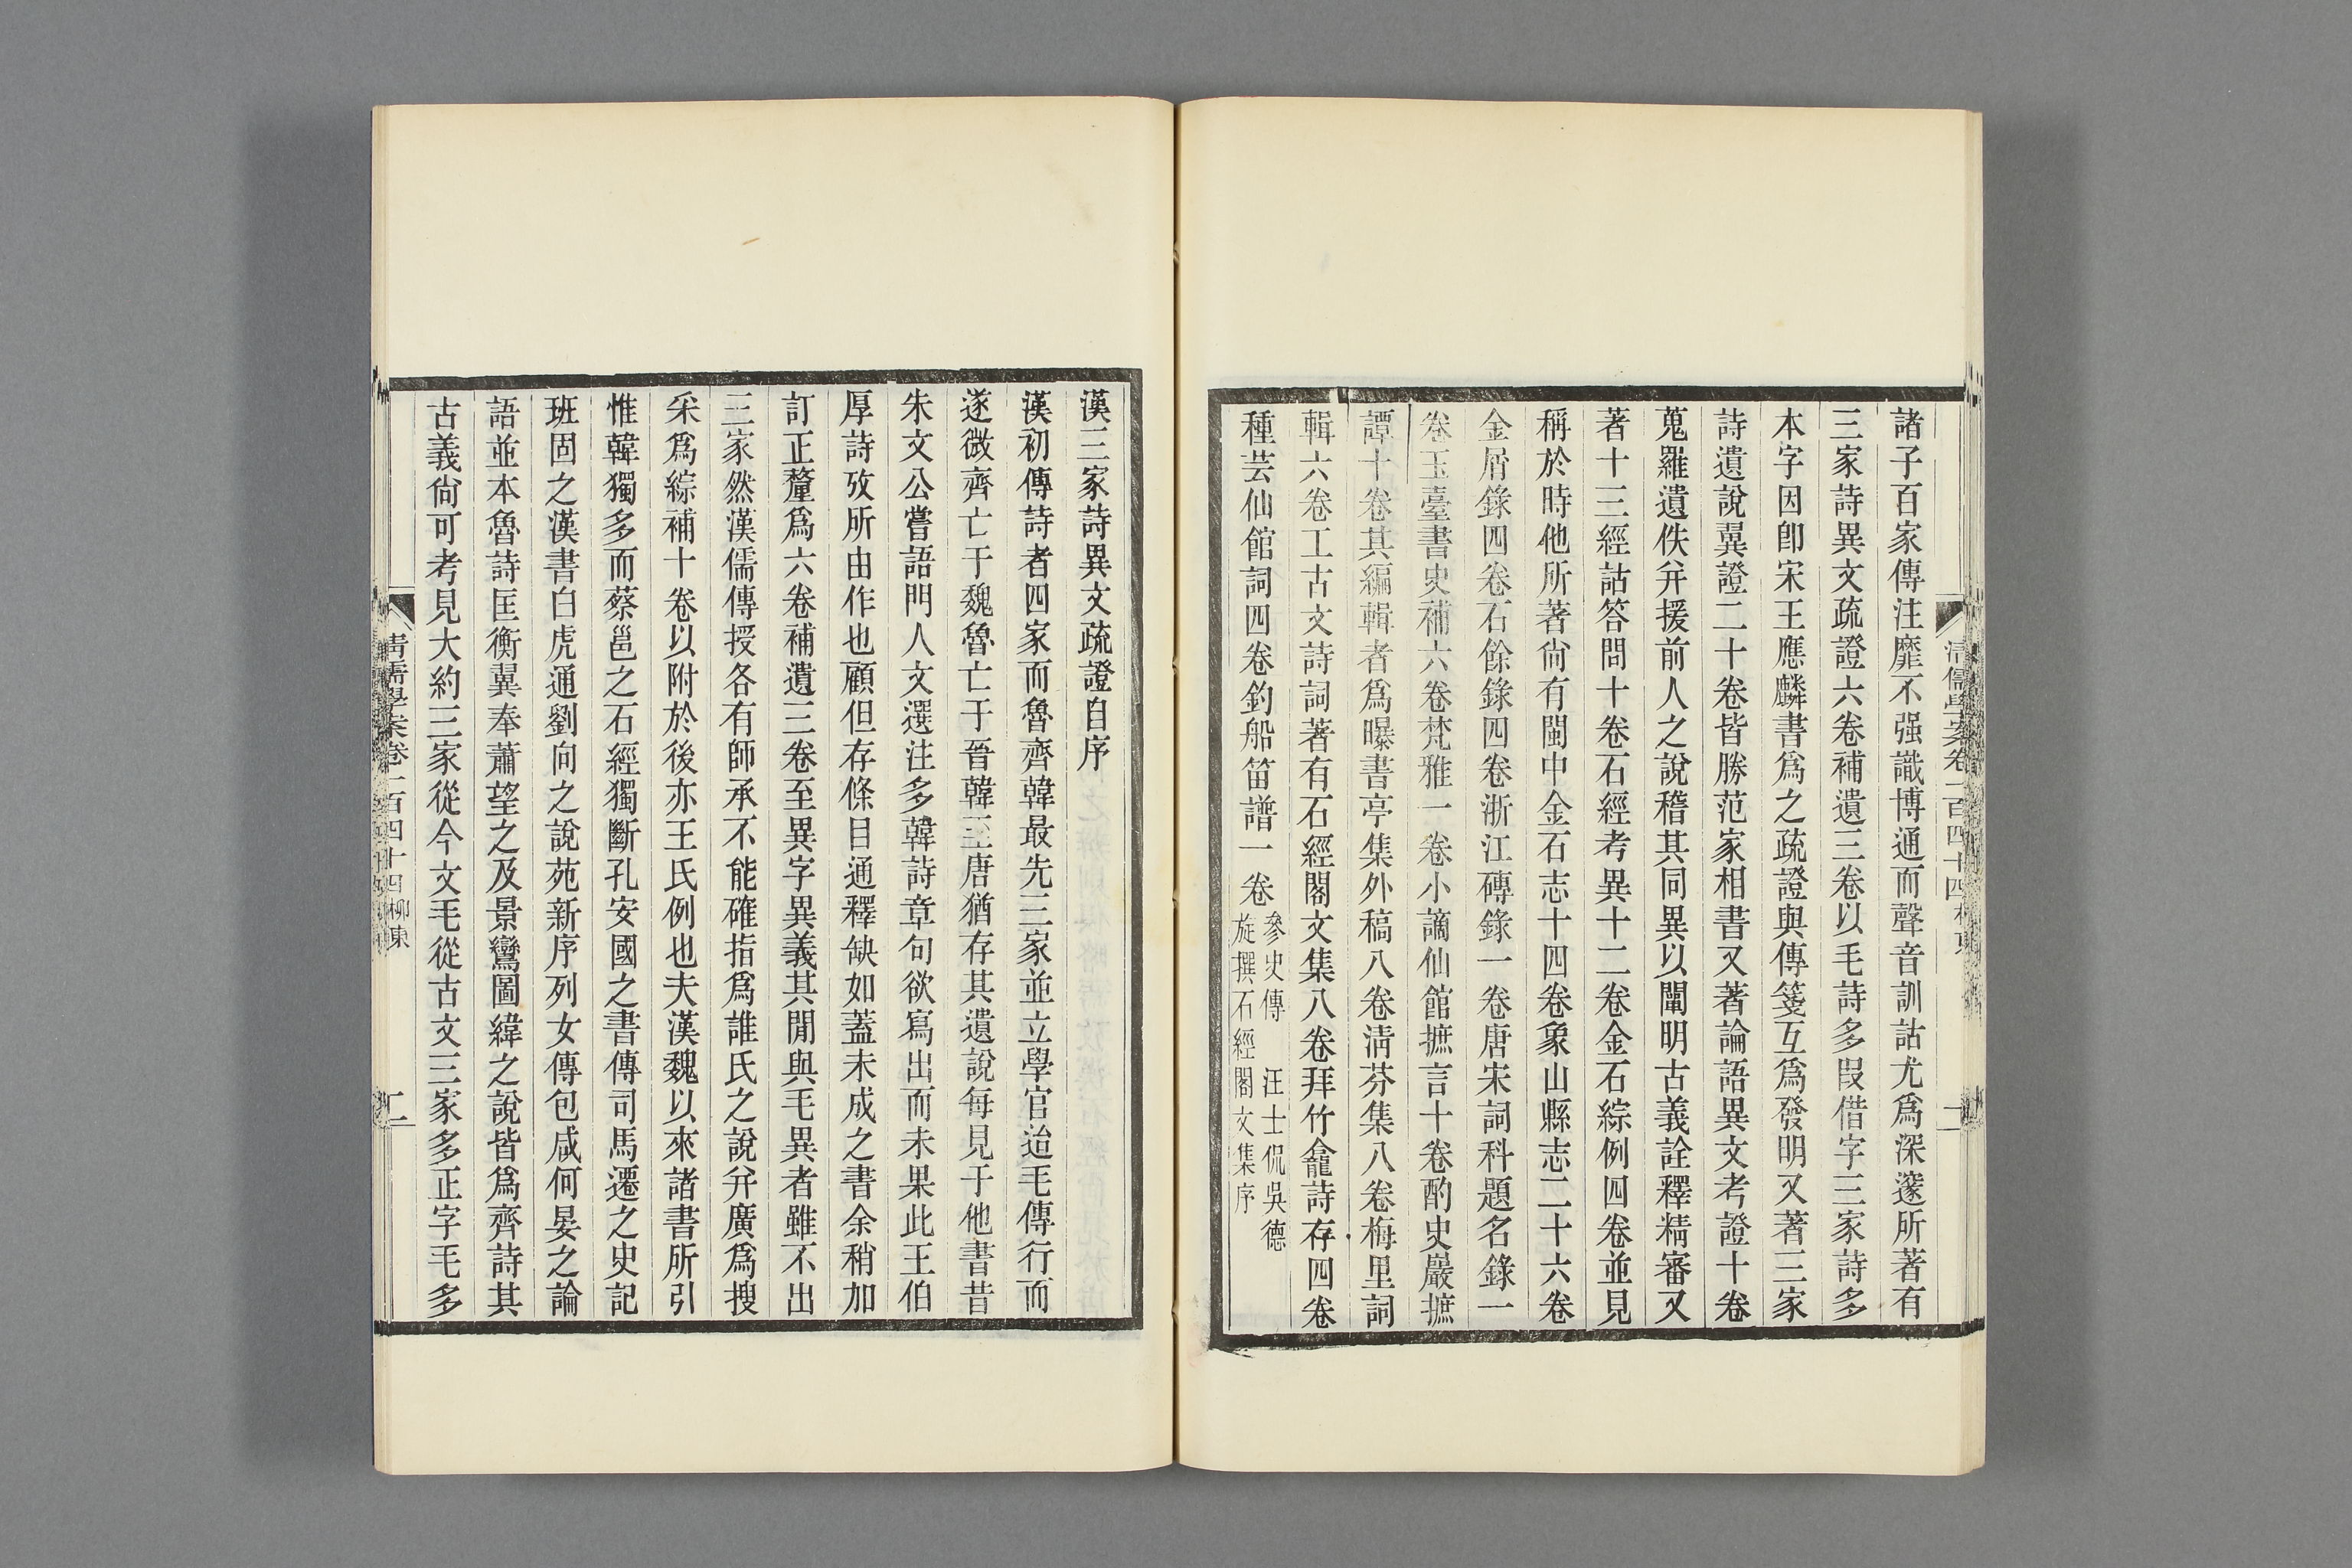 諸子百家傳注靡不强識博通而聲音訓詁尤爲深邃所著有
三家詩異文疏證六卷補遺三卷以毛詩多叚借字三家詩多
本字因卽宋王應麟書爲之疏證與傳箋互爲發明又著三家
詩遺說翼證二十卷皆勝范家相書又著論語異文考證十卷
蒐羅遺佚幷援前人之說稽其同異以闡明古義詮釋精審又
著十三經詁答問十卷石經考異十二卷金石綜例四卷並見
稱於時他所著尙有閩中金石志十四卷象山縣志二十六卷
金屑錄四卷石餘錄四卷浙江磚錄一卷唐宋詞科題名錄一
卷玉臺書史補六卷梵雅一卷小謫仙館摭言十卷酌史巖摭
譚十卷其編輯者爲曝書亭集外稿八卷淸芬集八卷梅里詞
輯六卷工古文詩詞著有石經閣文集八卷拜竹龕詩存四卷
種芸仙館詞四卷釣船笛譜一卷
參史傳　汪士侃吳德
旋撰石經閣文集序
清儒學案卷一百四十四
二
漢三家詩異文疏證自序
漢初傳詩者四家而魯齊韓最先三家並立學官迨毛傳行而
遂微齊亡于魏魯亡于晉韓至唐猶存其遺說每見于他書昔
朱文公嘗語門人文選注多韓詩章句欲寫出而未果此王伯
厚詩攷所由作也顧但存條目通釋缺如蓋未成之書余稍加
訂正釐爲六卷補遺三卷至異字異義其閒與毛異者雖不出
三家然漢儒傳授各有師承不能確指爲誰氏之說幷廣爲搜
采爲綜補十卷以附於後亦王氏例也夫漢魏以來諸書所引
惟韓獨多而蔡邕之石經獨斷孔安國之書傳司馬遷之史記
班固之漢書白虎通劉向之說苑新序列女傳包咸何晏之論
語並本魯詩匡衡翼奉蕭望之及景鸞圖緯之說皆爲齊詩其
古義尙可考見大約三家從今文毛從古文三家多正字毛多
清儒學案卷一百四十四柳東
二